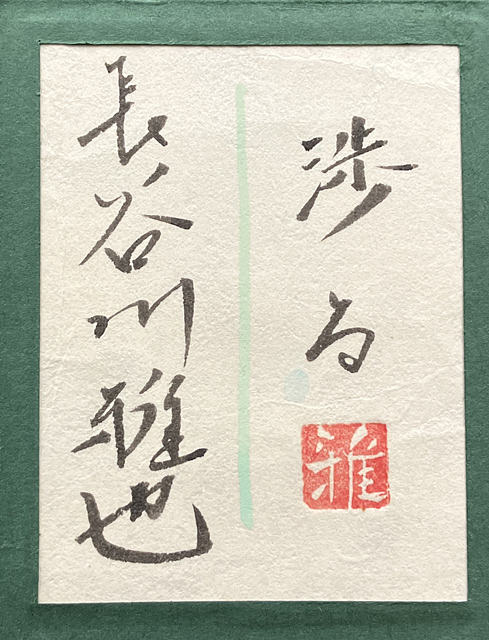 渉る
雅
長谷川雅也